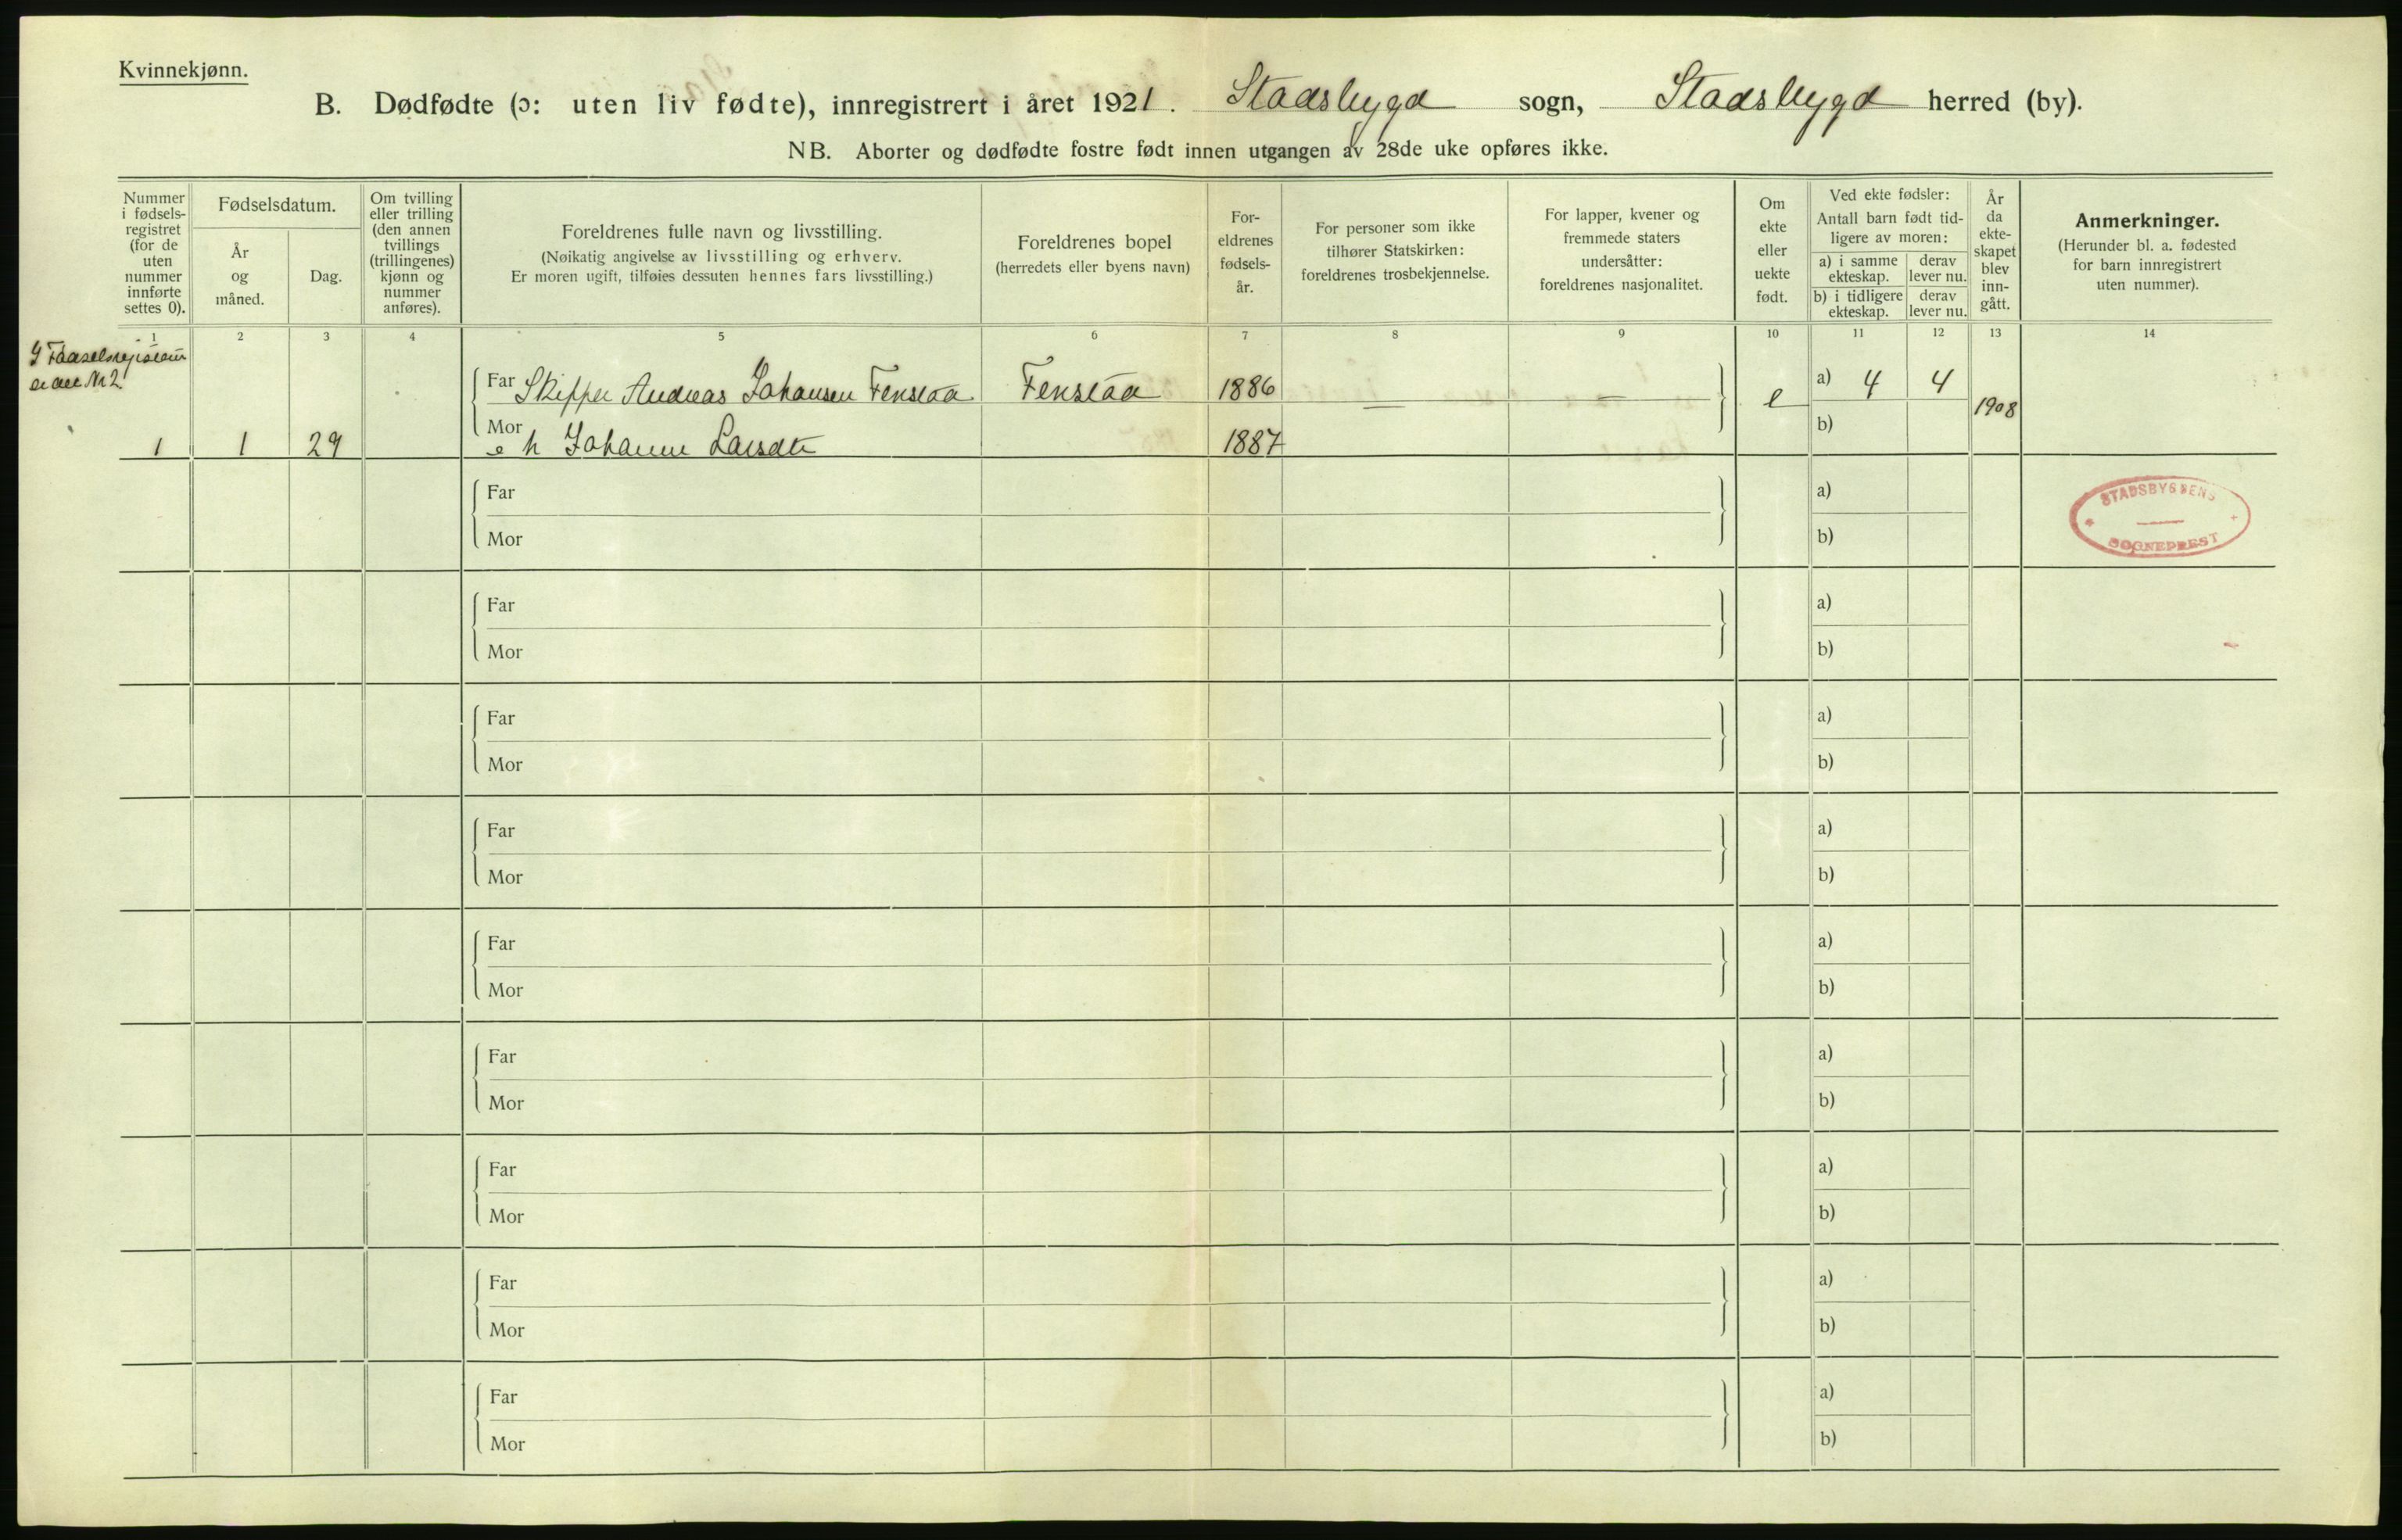 Kvinnekjønn.
B. Dødfødte (ɔ: uten liv fødte), innregistrert i året 1921. Stadsbygd sogn, Stadsbygd herred (by).
NB. Aborter og dødfødte fostre født innen utgangen av 28de uke opføres ikke.
Nummer i fødsels-registret (for de uten nummer innførte settes 0).
Fødselsdatum.
År og måned.
Dag.
Om tvilling eller trilling (den annen tvillings (trillingenes) kjønn og nummer anføres).
Foreldrenes fulle navn og livsstilling.
(Nøikatig angivelse av livsstilling og erhverv.
Er moren ugift, tilføies dessuten hennes fars livsstilling.)
Foreldrenes bopel
(herredets eller byens navn)
For-eldrenes fødsels-år.
For personer som ikke tilhører Statskirken: foreldrenes trosbekjennelse.
For lapper, kvener og fremmede staters undersåtter: foreldrenes nasjonalitet.
Om ekte eller uekte født.
Ved ekte fødsler:
Antall barn født tid-ligere av moren:
a) i samme ekteskap.
derav lever nu.
b) i tidligere ekteskap.
derav lever nu.
År da ekte-skapet blev inn-gått.
Anmerkninger.
(Herunder bl. a. fødested for barn innregistrert uten nummer).
1 2 3 4 5 6 7 8 9 10 11 12 13 14
I Fødselsregisteret
er det No 2
Far Skipper Andreas Johansen Fenstad Fenstad 1886 — — e a) 4 4 1908
1 1 29 Mor e h Johanne Larsdtr 1887 b)
Far a)
Mor b)
STADSBYGDENS
SOGNEPREST
Far a)
Mor b)
Far a)
Mor b)
Far a)
Mor b)
Far a)
Mor b)
Far a)
Mor b)
Far a)
Mor b)
Far a)
Mor b)
Far a)
Mor b)